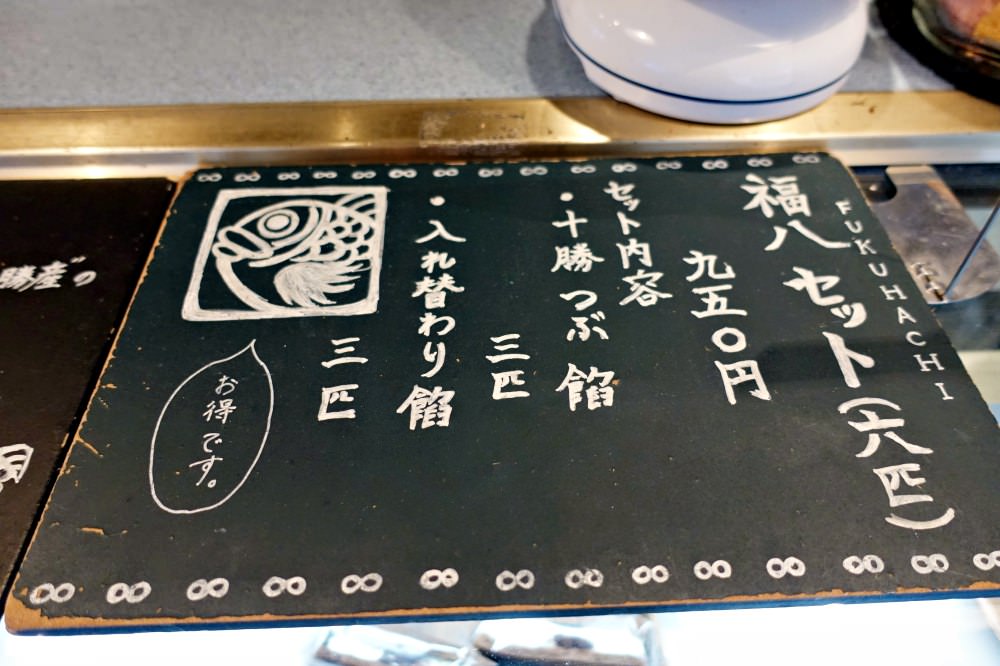 FUKUHACHI
福八 セット(六匹)
九五〇円
セット内容
・十勝つぶ餡
三匹
・入れ替わり餡
三匹
お得です。
勝産”の